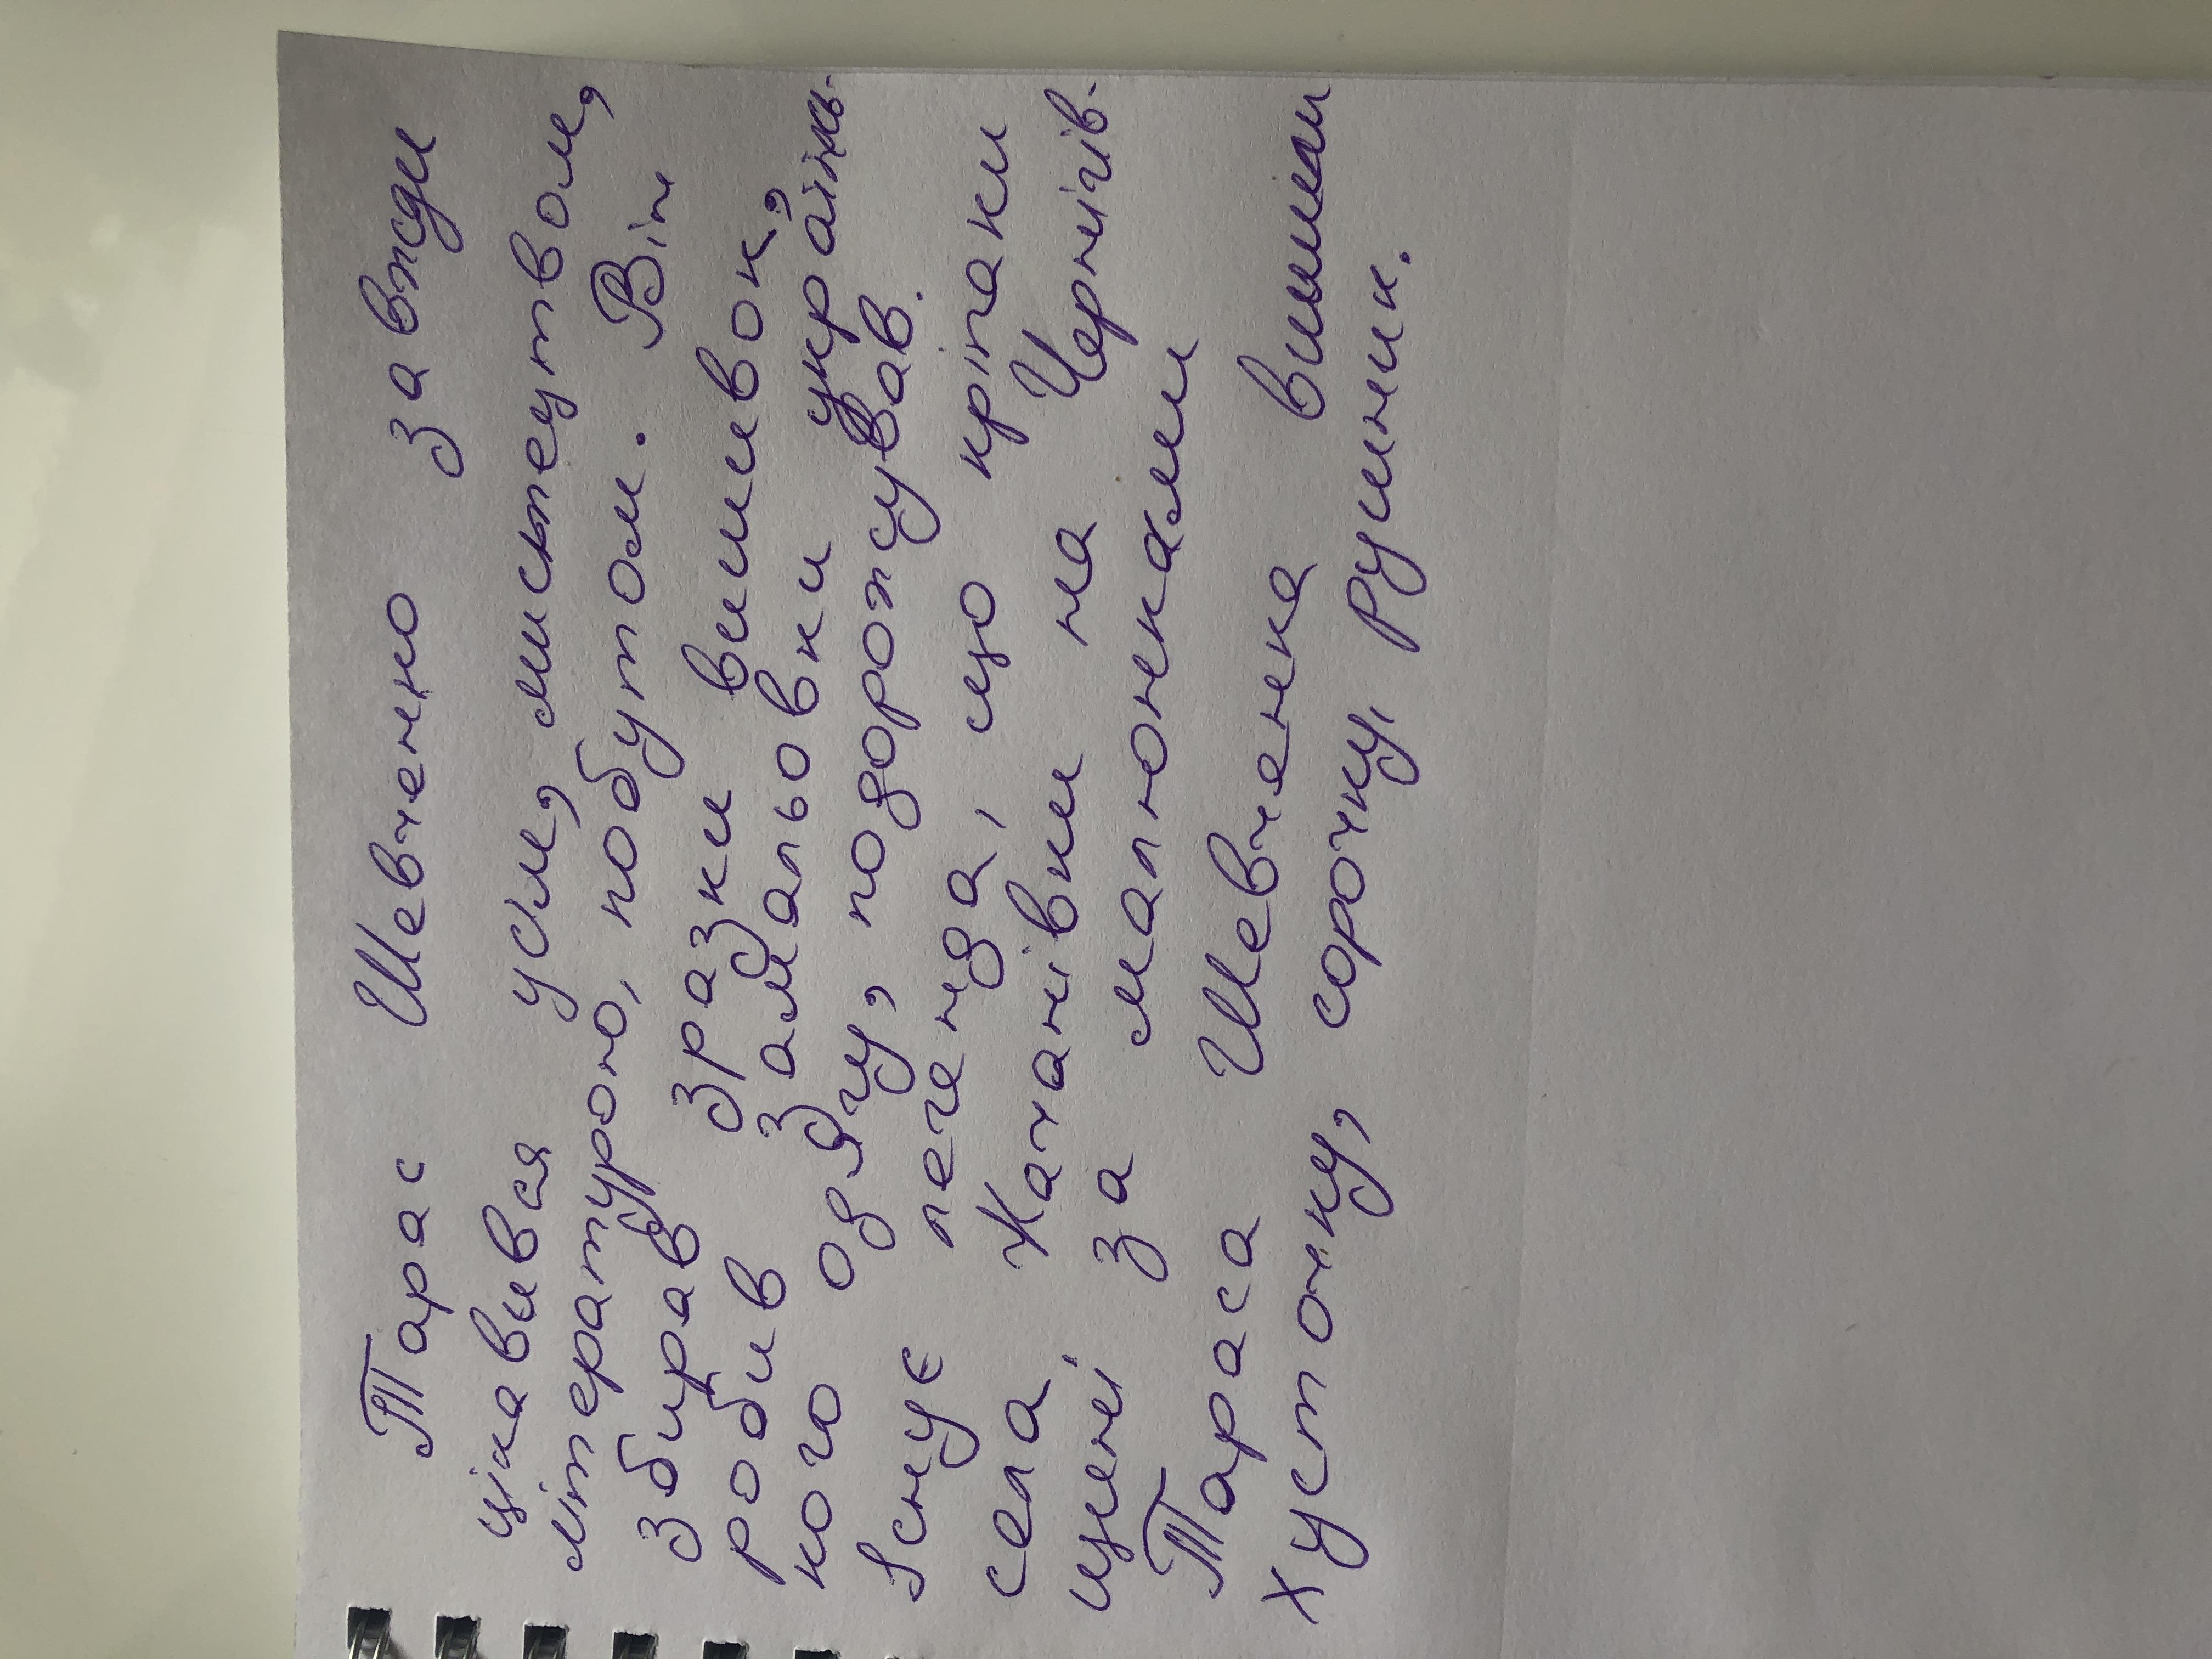 Тарас Шевченко завжди
цікавився усім, мистецтвом,
літературою, побутом. Він
збирав зразки вишивок,
робив замальовки українсь-
кого одягу, подорожував.
Існує легенда, що кріпаки
села Качанівки на Чернігів-
щені за малюнками
Тараса Шевченка вишили
хусточку, сорочку, рушник.